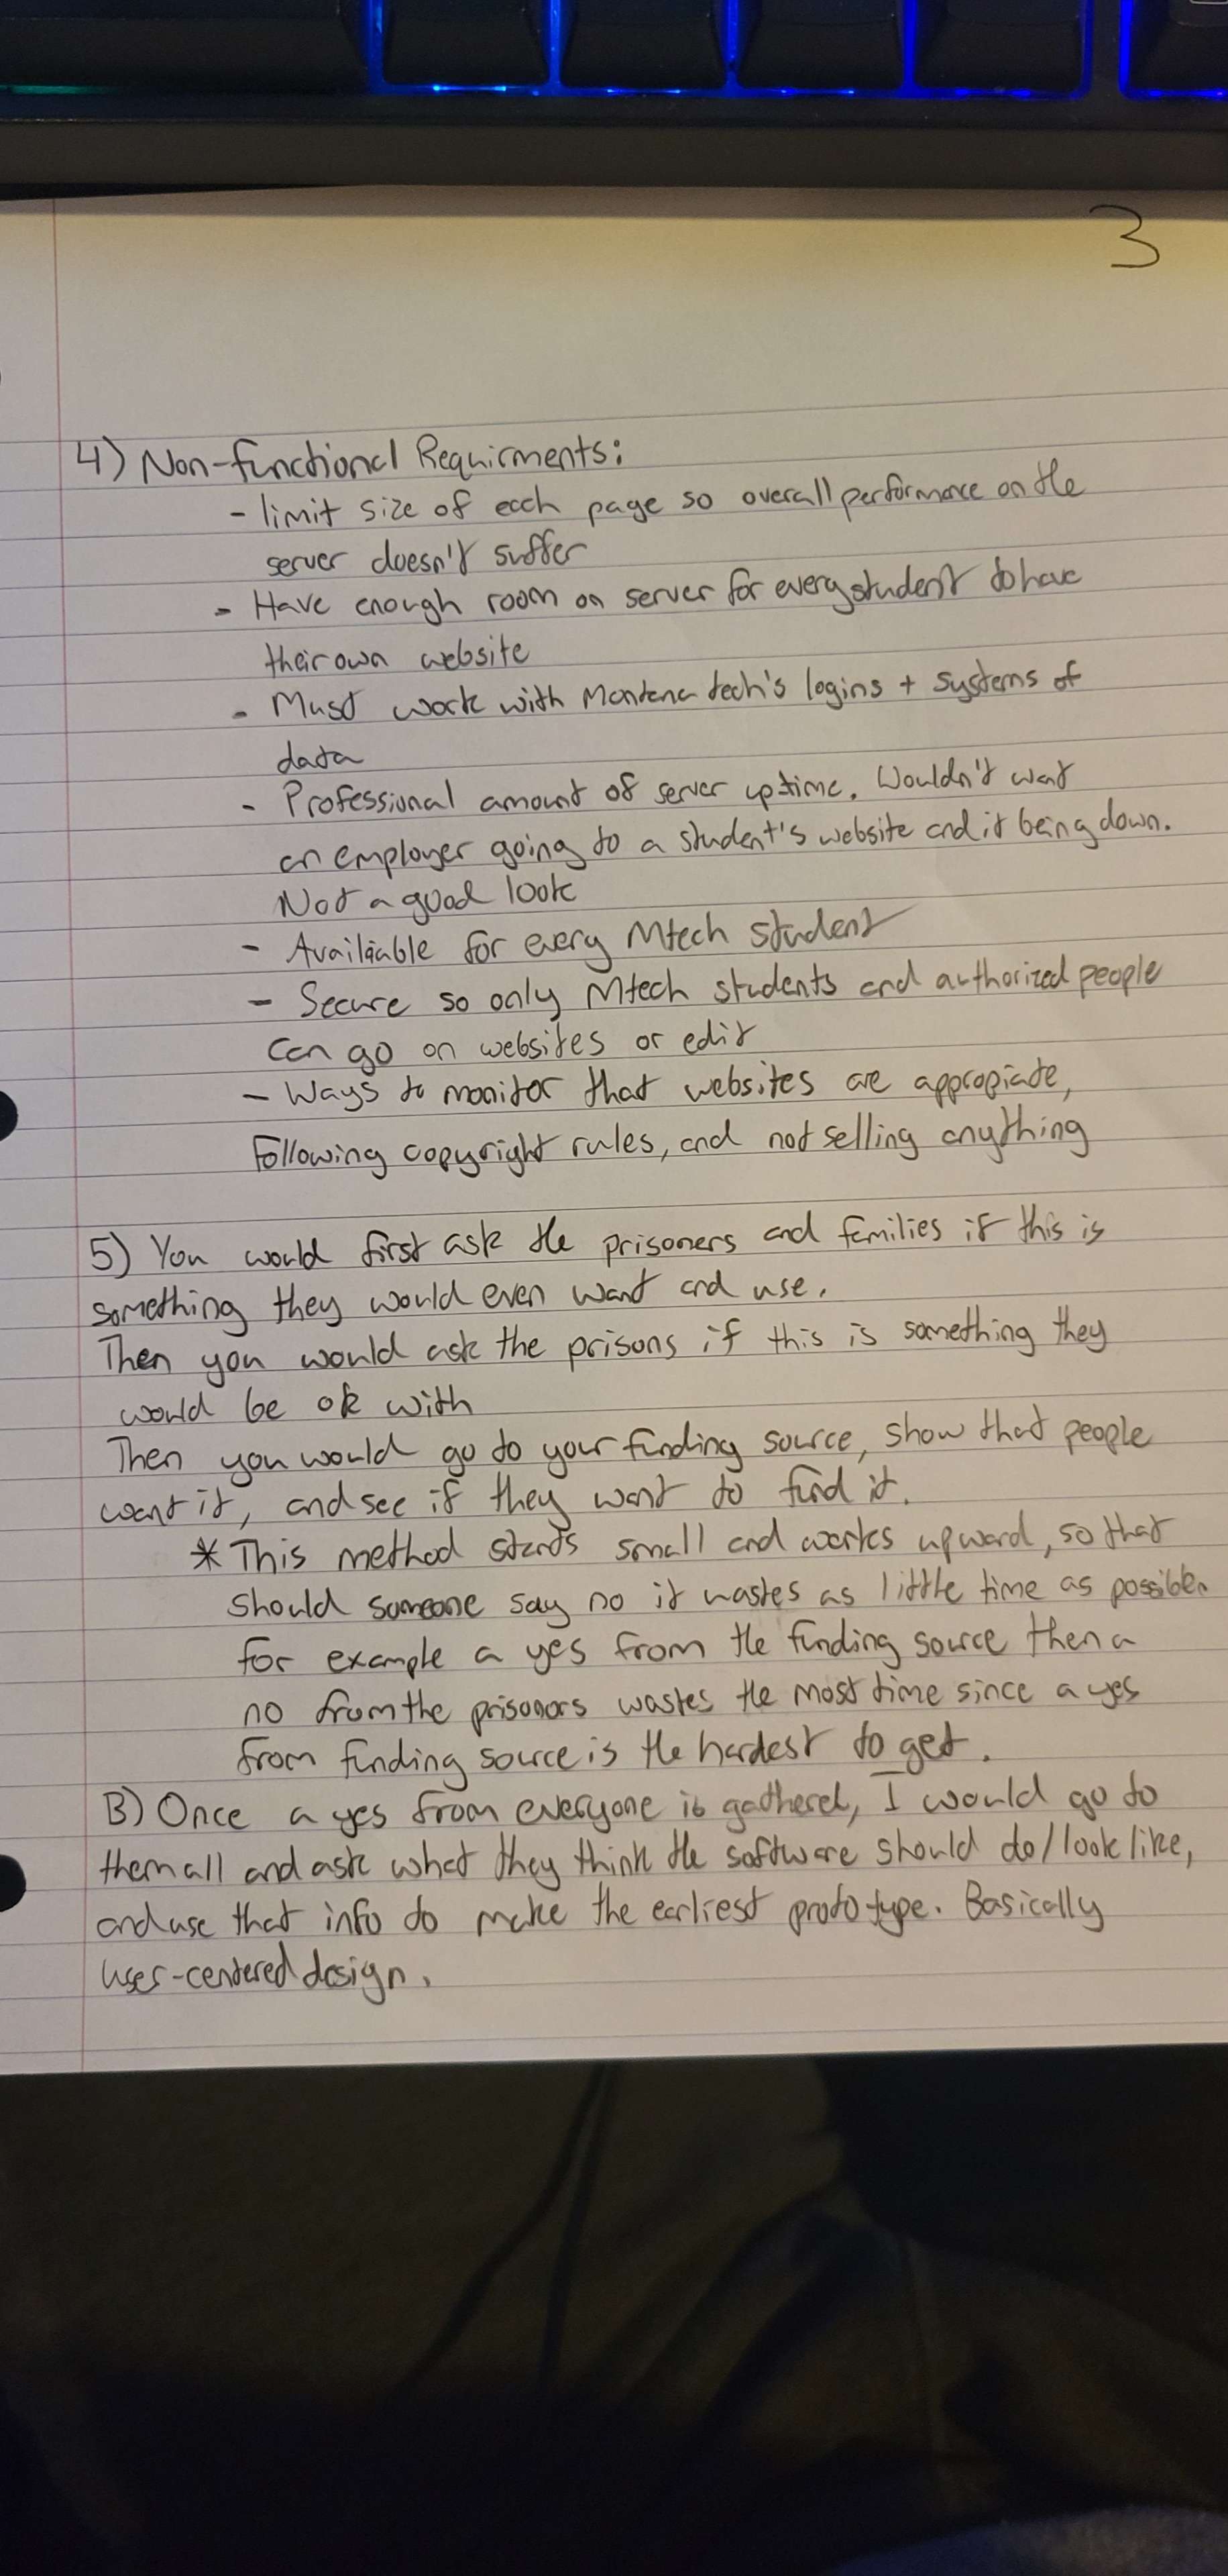 3
4) Non-functional Requirments:
- limit size of each page so overall performance on the
server doesn't suffer
- Have enough room on server for every student to have
their own website
- Must work with Montana tech's logins + systems of
data
- Professional amount of server uptime. Wouldn't want
an employer going to a student's website and it being down.
Not a good look
- Availiable for every Mtech student
- Secure so only Mtech students and authorized people
can go on websites or edit
- Ways to monitor that websites are appropiate,
Following copyright rules, and not selling anything
5) You would first ask the prisoners and families if this is
something they would even want and use.
Then you would ask the prisons if this is something they
would be ok with
Then you would go to your funding source, show that people
want it, and see if they want to fund it.
* This method starts small and works upward, so that
should someone say no it wastes as little time as possible.
For example a yes from the funding source then a
no from the prisoners wastes the most time since a yes
from funding source is the hardest to get.
B) Once a yes from everyone is gathered, I would go to
them all and ask what they think the software should do/look like,
and use that info to make the earliest prototype. Basically
user-centered design.